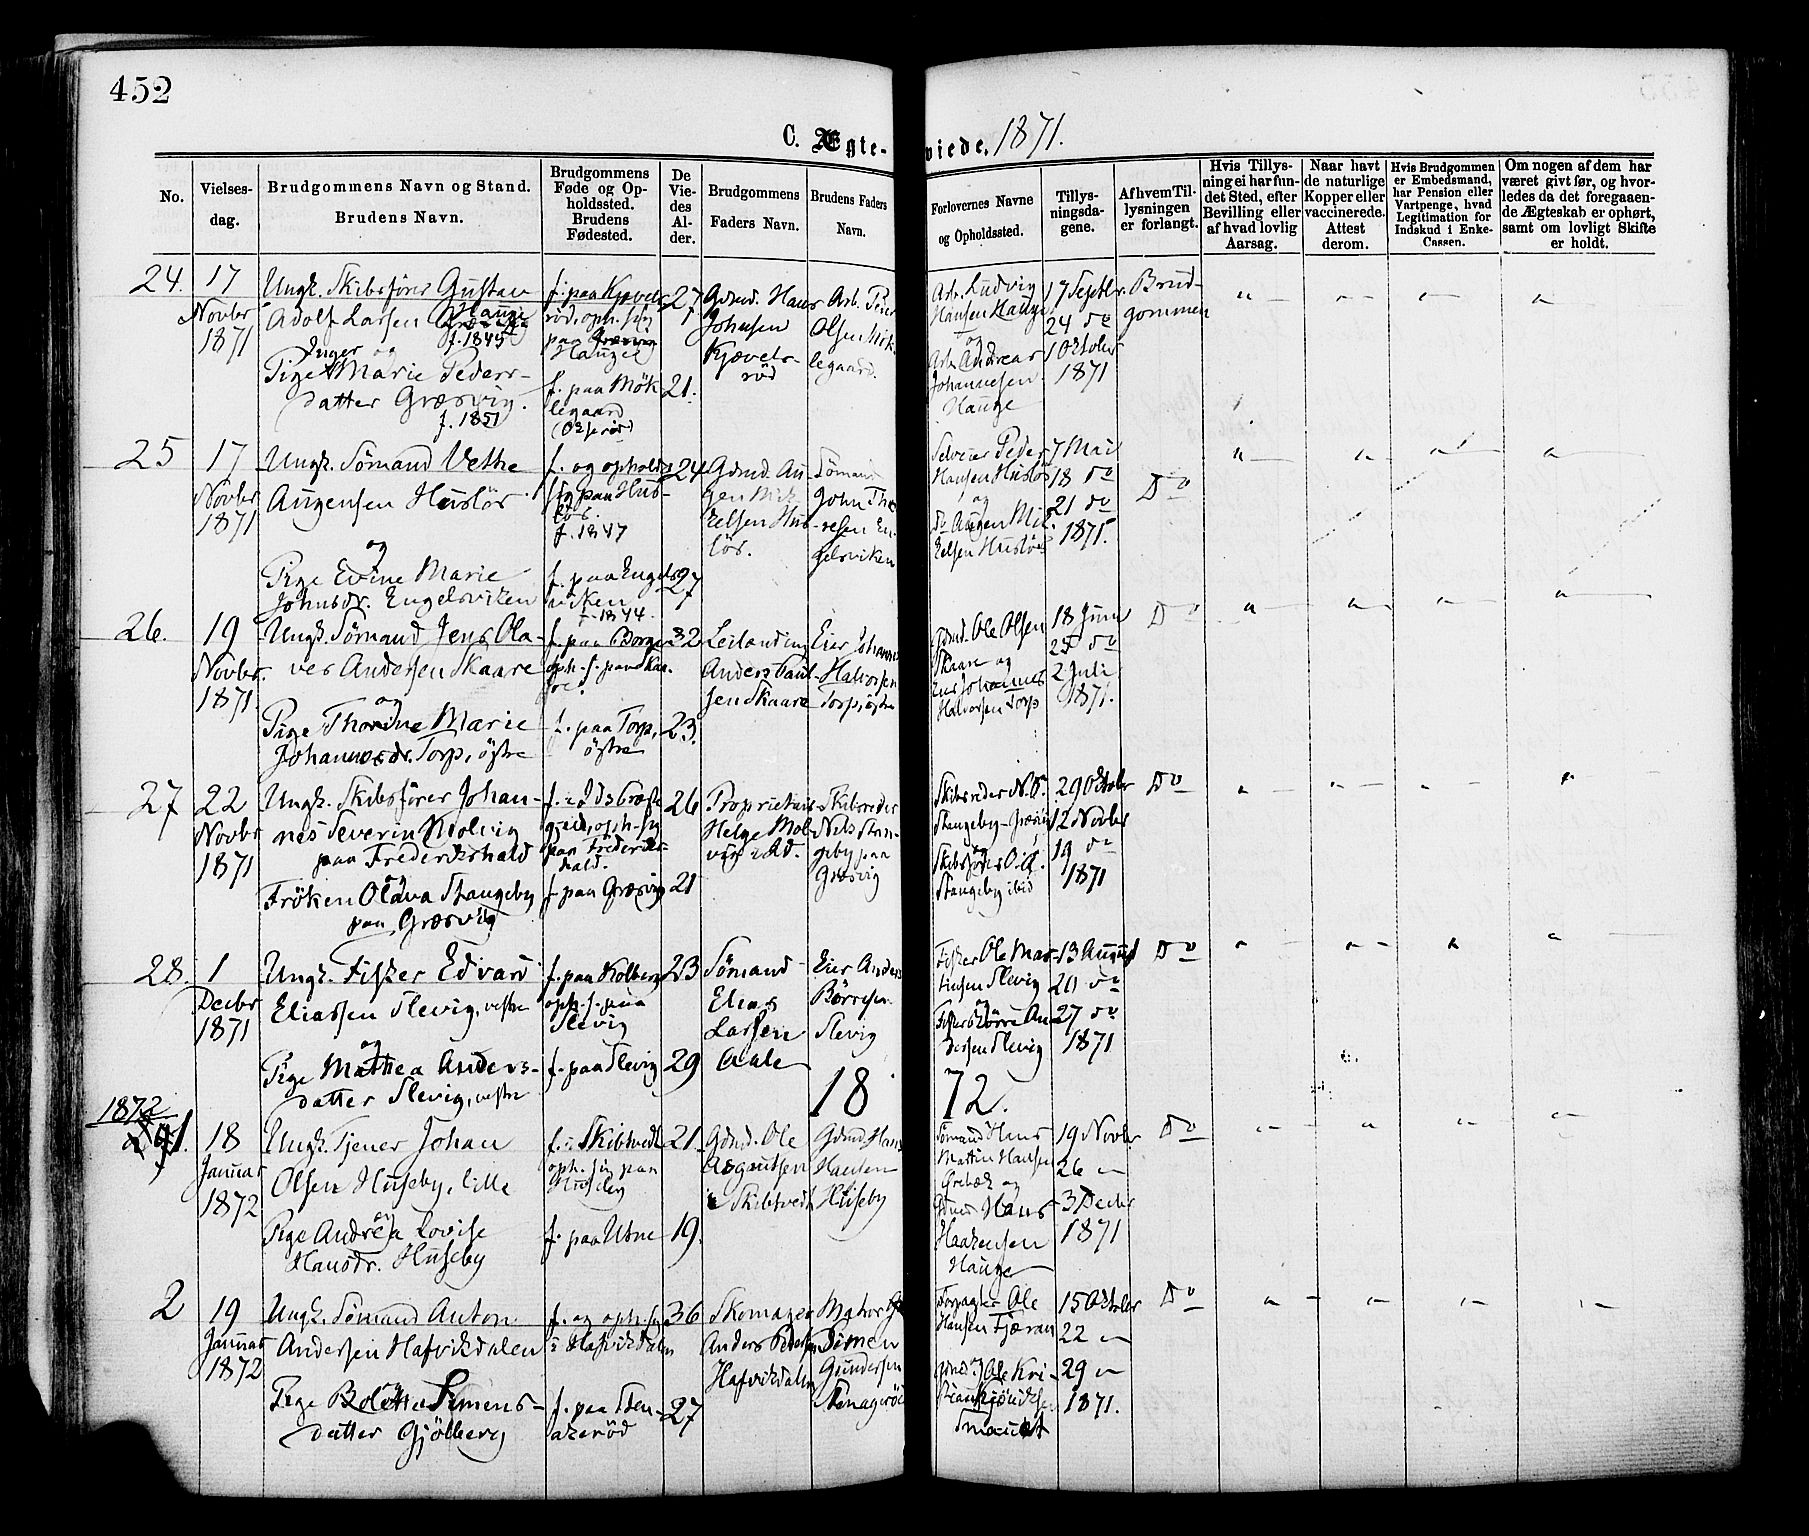 452
C. Ægte-viede. 1871.
No.
Vielses-
dag.
Brudgommens Navn og Stand.
Brudens Navn.
Brudgommens
Føde og Op-
holdssted.
Brudens
Fødested.
De
Vie-
des
Al-
der.
Brudgommens
Faders Navn.
Brudens Faders
Navn.
Forlovernes Navne
og Opholdssted.
Tillys-
ningsda-
gene.
Af hvem Til-
lysningen
er forlangt.
Hvis Tillys-
ning ei har fun-
det Sted, efter
Bevilling eller
af hvad lovlig
Aarsag.
Naar havt
de naturlige
Kopper eller
vaccinerede.
Attest
derom.
Hvis Brudgommen
er Embedsmand,
har Pension eller
Vartpenge, hvad
Legitimation for
Indskud i Enke-
Cassen.
Om nogen af dem har
været givt før, og hvor-
ledes da det foregaaen-
de Ægteskab er ophørt,
samt om lovligt Skifte
er holdt.
24.
17
Novbr
1871
Ungk. Skibsfører Gustav
Adolf Larsen Hauge
f. 1845
Inger og
Pige Marie Peders-
datter Græsvig.
f. 1851
f. paa Kjøvels-
rød, oph. sig
paa
Hauge
f. paa Mök-
legaard
(Onsø)
27
21.
Gdmd. Hans
Johnsen
Kjævels-
rød
Arb. Peder
Olsen Mök-
legaard.
Arb. Ludvig
Hansen Hauge
og
Arb. Andreas
Johannesen
Hauge
17 Septbr.
24 do
1 Octobr
1871
Brud-
gommen
25
17
Novbr
1871
Ungk. Sömand Vethe
Augensen Huslös.
og
Pige Evine Marie
Johnsdr. Engelsviken
f. og opholdr
sig paa Hus-
lös.
f. 1847
f. paa Engels-
viken
f. 1844.
24
27
Gdmd. Au-
gen Mik-
kelsen Hus-
lös.
Sömand
John Tho-
resen En-
gelsviken
Selveier Peder
Hansen Huslös
og
do Augen Mik-
kelsen Huslös
7 Mai
18 do
21 do
1871.
Do
26.
19
Novbr.
1871.
Ungk. Sömand Jens Ola-
ves Andersen Skaare
og
Pige Thorine Marie
Johannesdr. Torp, östre
f. paa Borge
oph. s. paa Skaa-
re.
f. paa Torp,
östre
32
23.
Leilænding
Anders Paul-
sen Skaare
Eier Johannes
Halvorsen
Torp, östre
Gdmd. Ole Olsen
Skaare og
Eier Johannes
Halvorsen Torp
18 Juni
25 do
2 Juli
1871.
Do
27
22
Novbr
1871
Ungk. Skibsfører Johan-
nes Severin Molvig
paa Frederikshald
og
Fröken Olava Stangeby
paa Græsvig
f. i Ids Præste-
gjeld, oph. sig
paa Frederiks-
hald.
f. paa Græsvig
26
21
Proprietair
Helge Mol-
vig i Id.
Skibsreder
Nils Stan-
geby paa
Græsvig
Skibsreder N.
Stangeby
og
Skibsfører O.
Stangeby ibid
29 Octobr
12 Novbr
19 do
1871
Do
28.
1
Decbr
1871
Ungk. Fisker Edvard
Eliassen Slevig, vestre
og
Pige Mathea Anders-
datter Slevig, vestre
f. paa Kolberg
oph. s. paa
Slevig
f. paa Slevig
23
29
Sömand
Elias
Larsen
Aale
Eier Anders
Börresen
Slevig
Fisker Ole Mar-
tinsen Slevig
og
Fisker Börre An-
dersen Slevig
13 August
20 do
27 do
1871
Do
1872
1872
1.
18
Januar
1872
Ungk. Tjener Johan
Olsen Huseby, lille
og
Pige Andrea Lovise
Hansdr. Huseby
f. i Skibtvedt
oph. sig paa
Huseby
f. paa Utne
21.
19.
Gdmd. Ole
Asgautsen
i Skibtvedt
Gdmd. Hans
Hansen
Huseby
Sömand Hans
Martin Hansen
Örebæk og
Hans
Haakensen
Hauge
19 Novbr
26 "
3 Decbr
1871
Do
2
19
Januar
1872
Ungk. Sömand Anton
Andersen Hafvikdalen
og
Pige Bolette Simens-
datter Gjölberg
f. og oph. sig
i Hafvikdalen
f. paa Sten-
akeröd
36
27
Skomager
Anders Pedersen
Hafvikdalen
Simen
Gundersen
Forpagter Ole
Hansen Fjæran
og
Ole Kri-
15 Octobr
22 "
29 "
1871.
Do